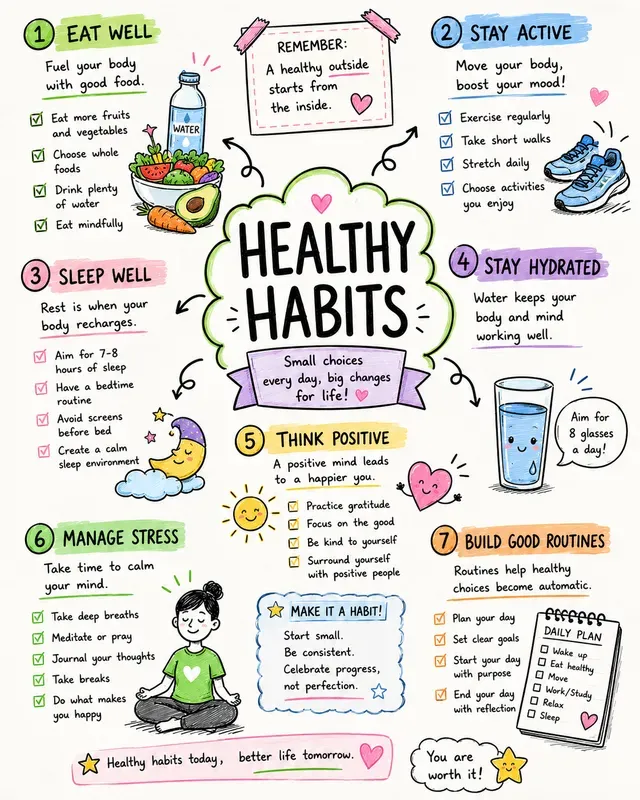 1 EAT WELL
Fuel your body
with good food.
Eat more fruits
and vegetables
Choose whole
foods
Drink plenty
of water
Eat mindfully
WATER
REMEMBER:
A healthy outside
starts from
the inside.
2 STAY ACTIVE
Move your body,
boost your mood!
Exercise regularly
Take short walks
Stretch daily
Choose activities
you enjoy
HEALTHY
HABITS
Small choices
every day, big changes
for life!
3 SLEEP WELL
Rest is when your
body recharges.
Aim for 7-8
hours of sleep
Have a bedtime
routine
Avoid screens
before bed
Create a calm
sleep environment
4 STAY HYDRATED
Water keeps your
body and mind
working well.
Aim for
8 glasses
a day!
5 THINK POSITIVE
A positive mind leads
to a happier you.
Practice gratitude
Focus on the good
Be kind to yourself
Surround yourself
with positive people
6 MANAGE STRESS
Take time to calm
your mind.
Take deep breaths
Meditate or pray
Journal your thoughts
Take breaks
Do what makes
you happy
MAKE IT A HABIT!
Start small.
Be consistent.
Celebrate progress,
not perfection.
7 BUILD GOOD ROUTINES
Routines help healthy
choices become automatic.
Plan your day
Set clear goals
Start your day
with purpose
End your day
with reflection
DAILY PLAN
Wake up
Eat healthy
Move
Work/Study
Relax
Sleep
Healthy habits today, better life tomorrow.
You are
worth it!